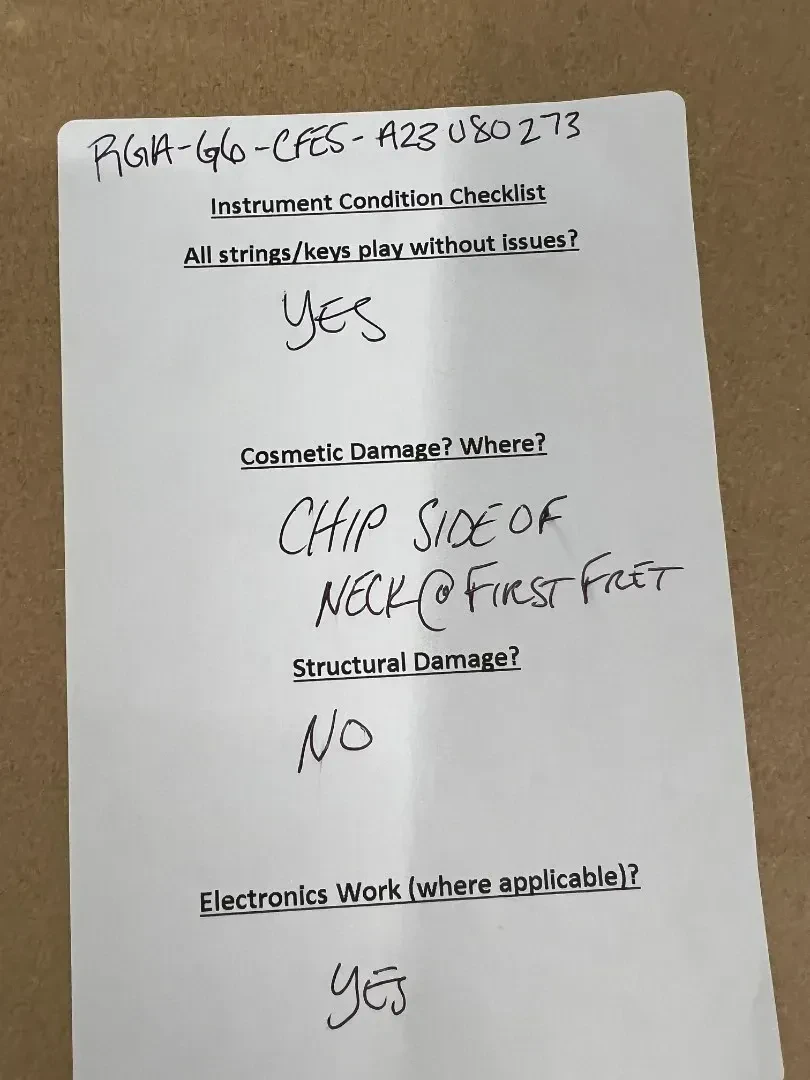 RGA-G6-CFES-A23U80273
Instrument Condition Checklist
All strings/keys play without issues?
YES
Cosmetic Damage? Where?
CHIP SIDE OF
NECK @ FIRST FRET
Structural Damage?
NO
Electronics Work (where applicable)?
YES